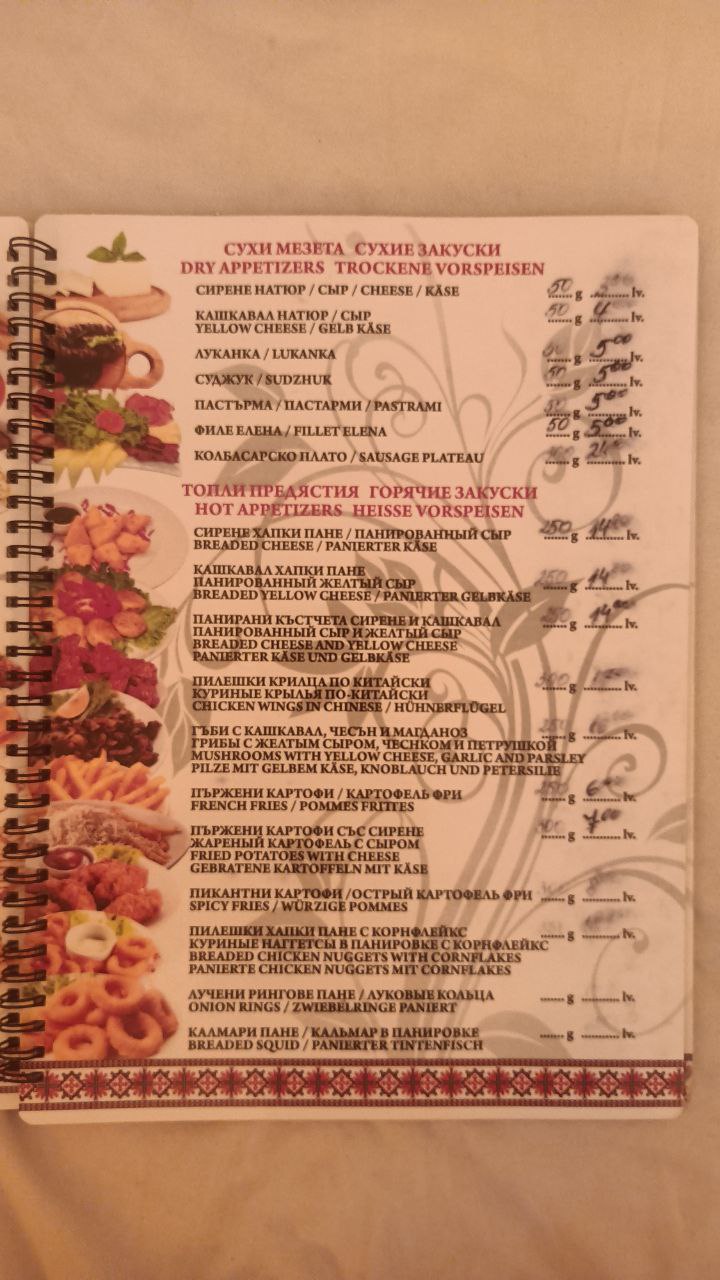 СУХИ МЕЗЕТА СУХИЕ ЗАКУСКИ
DRY APPETIZERS TROCKENE VORSPEISEN
СИРЕНЕ НАТЮР / СЫР / CHEESE / KÄSE 50 g lv.
КАШКАВАЛ НАТЮР / СЫР 50 g 4 lv.
YELLOW CHEESE / GELB KÄSE
ЛУКАНКА / LUKANKA g 5.00 lv.
СУДЖУК / SUDZHUK 50 g 5.00 lv.
ПАСТЪРМА / ПАСТАРМИ / PASTRAMI g 5.00 lv.
ФИЛЕ ЕЛЕНА / FILLET ELENA 50 g 5.00 lv.
КОЛБАСАРСКО ПЛАТО / SAUSAGE PLATEAU g lv.
ТОПЛИ ПРЕДЯСТИЯ ГОРЯЧИЕ ЗАКУСКИ
HOT APPETIZERS HEISSE VORSPEISEN
СИРЕНЕ ХАПКИ ПАНЕ / ПАНИРОВАННЫЙ СЫР 250 g 14.00 lv.
BREADED CHEESE / PANIERTER KÄSE
КАШКАВАЛ ХАПКИ ПАНЕ
ПАНИРОВАННЫЙ ЖЕЛТЫЙ СЫР 250 g 14.00 lv.
BREADED YELLOW CHEESE / PANIERTER GELBKÄSE
ПАНИРАНИ КЪСТЧЕТА СИРЕНЕ И КАШКАВАЛ g 14.00 lv.
ПАНИРОВАННЫЙ СЫР И ЖЕЛТЫЙ СЫР
BREADED CHEESE AND YELLOW CHEESE
PANIERTER KÄSE UND GELBKÄSE
ПИЛЕШКИ КРИЛЦА ПО КИТАЙСКИ g lv.
КУРИНЫЕ КРЫЛЬЯ ПО-КИТАЙСКИ
CHICKEN WINGS IN CHINESE / HÜHNERFLÜGEL
ГЪБИ С КАШКАВАЛ, ЧЕСЪН И МАГДАНОЗ g lv.
ГРИБЫ С ЖЕЛТЫМ СЫРОМ, ЧЕСНКОМ И ПЕТРУШКОЙ
MUSHROOMS WITH YELLOW CHEESE, GARLIC AND PARSLEY
PILZE MIT GELBEM KÄSE, KNOBLAUCH UND PETERSILIE
ПЪРЖЕНИ КАРТОФИ / КАРТОФЕЛЬ ФРИ g 6.00 lv.
FRENCH FRIES / POMMES FRITTES
ПЪРЖЕНИ КАРТОФИ СЪС СИРЕНЕ g 7.00 lv.
ЖАРЕНЫЙ КАРТОФЕЛЬ С СЫРОМ
FRIED POTATOES WITH CHEESE
GEBRATENE KARTOFFELN MIT KÄSE
ПИКАНТНИ КАРТОФИ /ОСТРЫЙ КАРТОФЕЛЬ ФРИ g lv.
SPICY FRIES / WÜRZIGE POMMES
ПИЛЕШКИ ХАПКИ ПАНЕ С КОРНФЛЕЙКС g lv.
КУРИНЫЕ НАГГЕТСЫ В ПАНИРОВКЕ С КОРНФЛЕЙКС
BREADED CHICKEN NUGGETS WITH CORNFLAKES
PANIERTE CHICKEN NUGGETS MIT CORNFLAKES
ЛУЧЕНИ РИНГОВЕ ПАНЕ / ЛУКОВЫЕ КОЛЬЦА g lv.
ONION RINGS / ZWIEBELRINGE PANIERT
КАЛМАРИ ПАНЕ / КАЛЬМАР В ПАНИРОВКЕ g lv.
BREADED SQUID / PANIERTER TINTENFISCH